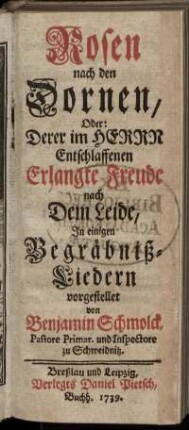 Rosen
nach den
Dornen,
Oder:
Derer im HERRN
Entschlaffenen
Erlangte Freude
nach
Dem Leide,
In einigen
Begräbniß-
Liedern
vorgestellet
von
Benjamin Schmolck,
Pastore Primar. und Inspectore
zu Schweidnitz.
Breßlau und Leipzig,
Verlegts Daniel Pietsch,
Buchh. 1739.